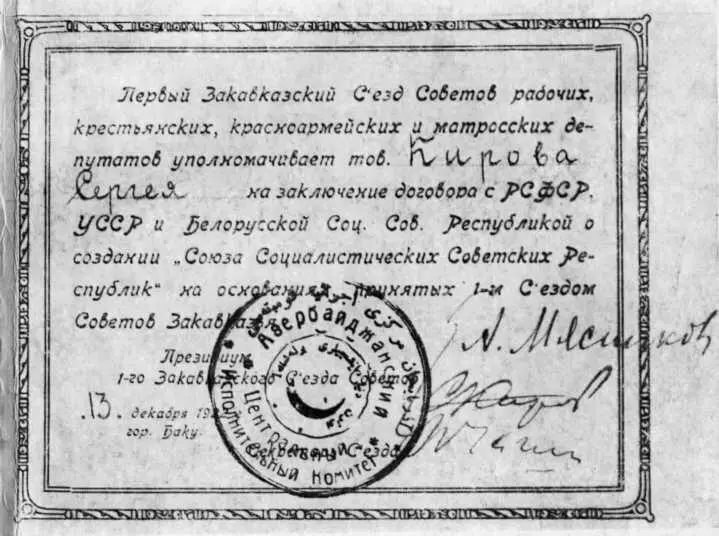 Первый Закавказский С'езд Советов рабочих,
крестьянских, красноармейских и матросских де-
путатов уполномачивает тов. Кирова
Сергея на заключение договора с РСФСР,
УССР и Белорусской Соц. Сов. Республикой о
создании „Союза Социалистических Советских Ре-
спублик" на основаниях, принятых 1-м С'ездом
Советов Закавказья.
Президиум
1-го Закавказского С'езда Советов
А. Мясников
13. декабря 192
гор. Баку.
Секретарь С'езда
Азербайджанский
Центральный
Исполнительный Комитет